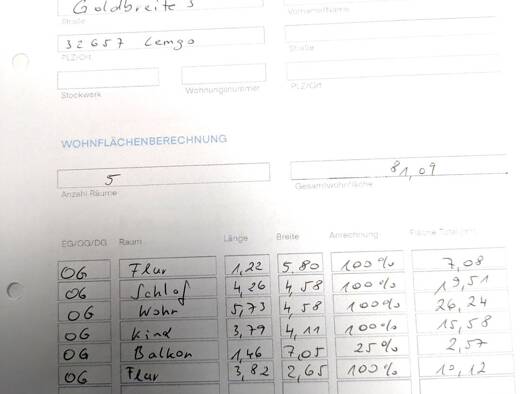 Goldbreite 3
Straße
Vorname/Name
32657 Lemgo
PLZ/Ort
Straße
Stockwerk Wohnungsnummer
PLZ/Ort
WOHNFLÄCHENBERECHNUNG
5 81,09
Anzahl Räume Gesamtwohnfläche
EG/OG/DG Raum Länge Breite Anrechnung Fläche Total (m²)
OG Flur 1,22 5,80 100% 7,08
OG Schlof 4,26 4,58 100% 19,51
OG Wohn 5,73 4,58 100% 26,24
OG Kind 3,79 4,11 100% 15,58
OG Balkon 1,46 7,05 25% 2,57
OG Flur 3,82 2,65 100% 10,12